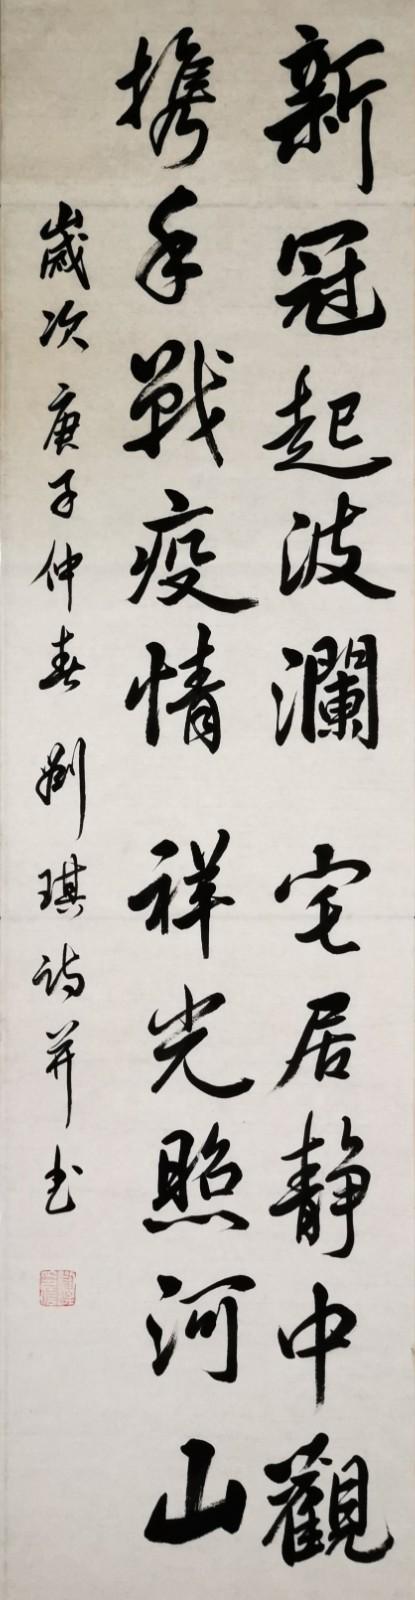 新冠起波瀾 宅居靜中觀
携手戰疫情 祥光照河山
歲次庚子仲春 劉琪詩并书